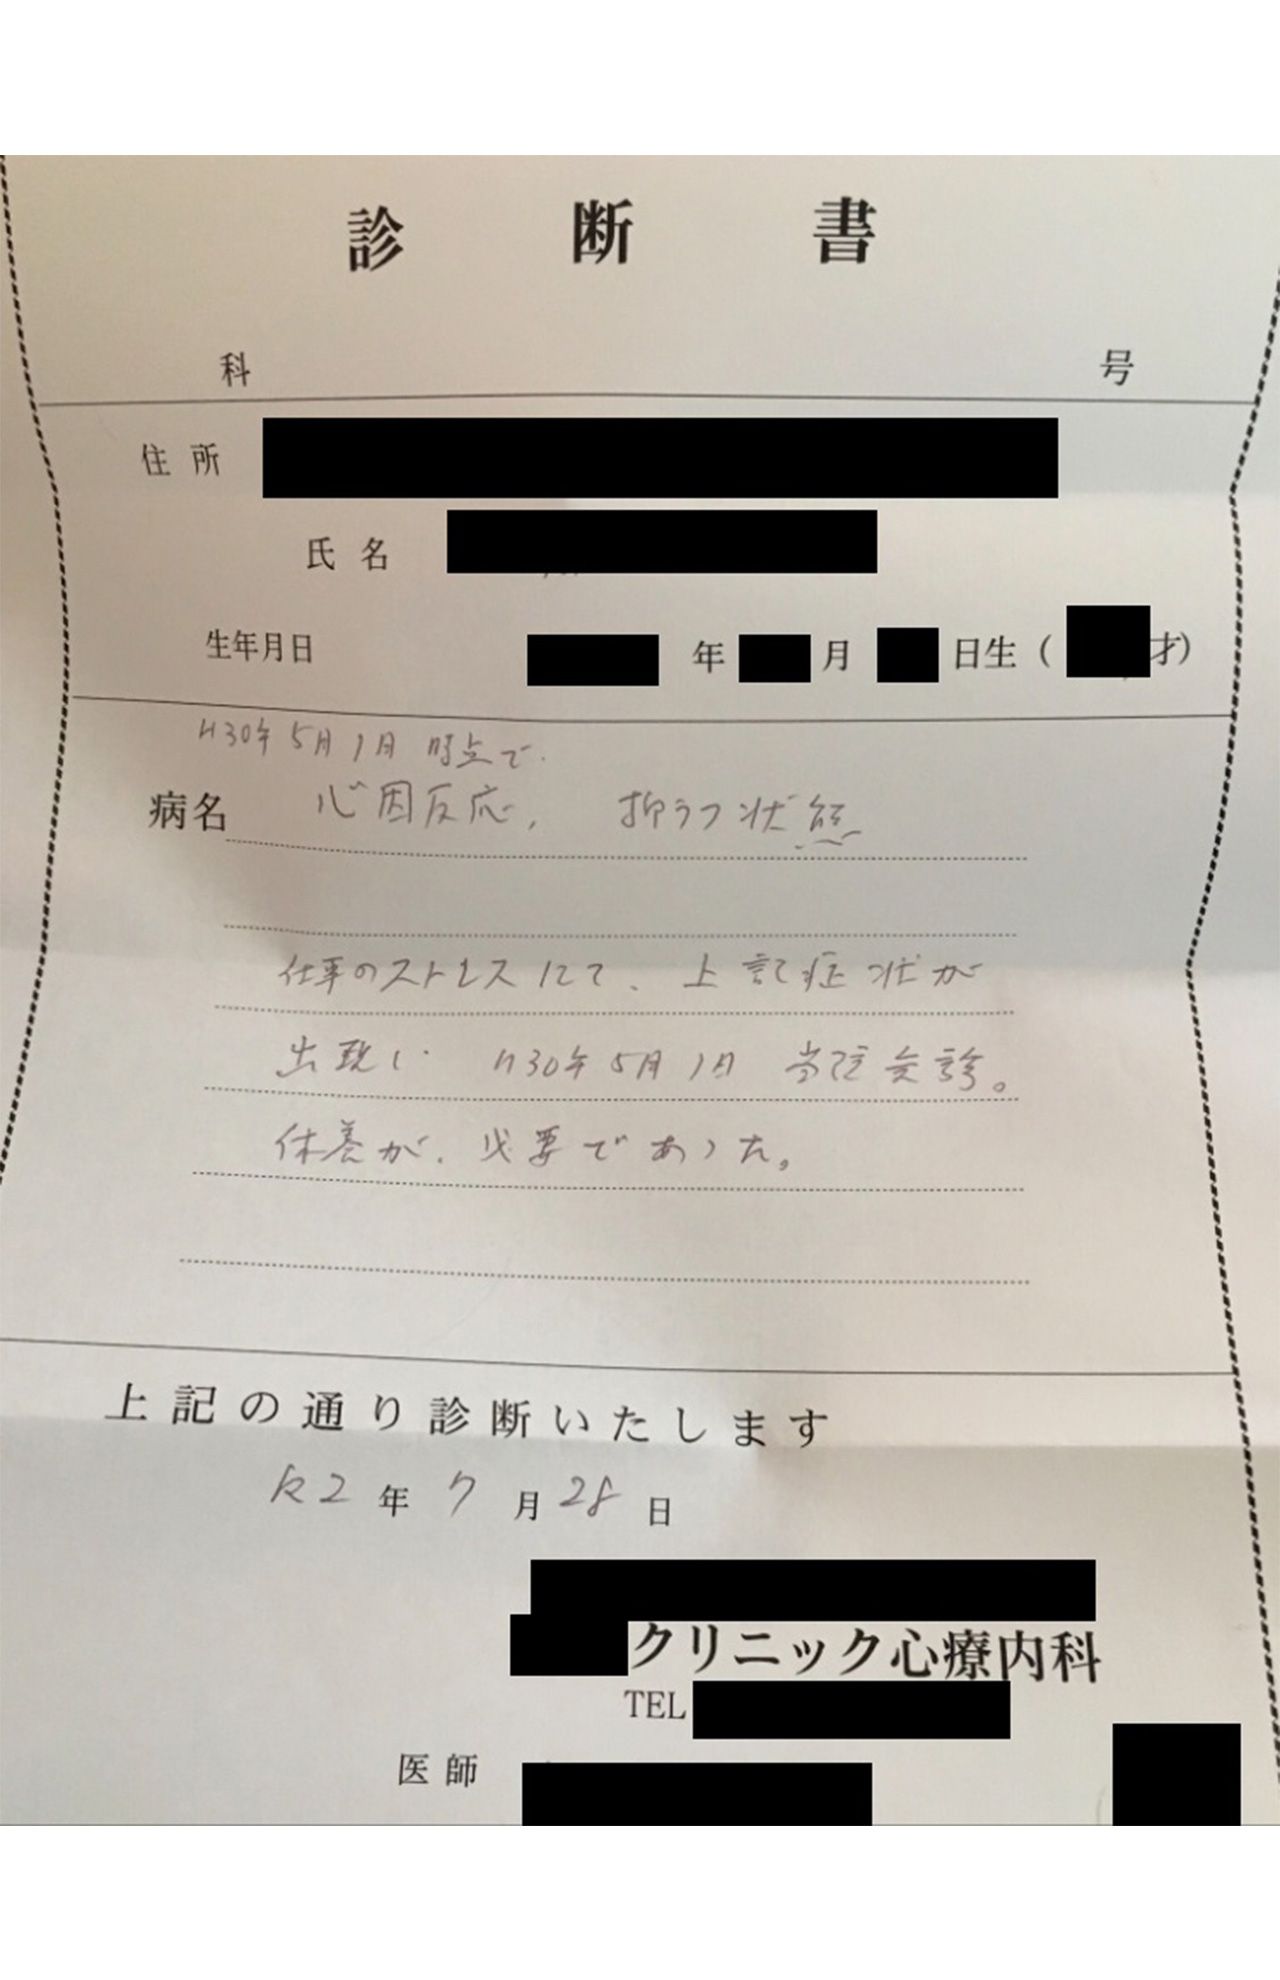 診断書
科 号
住所
氏名
生年月日 年 月 日生( 才)
H30年5月1日 時点で
病名 心因反応, 抑うつ状態
仕事のストレスにて、上記症状が
出現し H30年5月1日 当院受診。
休養が、必要であった。
上記の通り診断いたします
R2年7月28日
クリニック心療内科
TEL
医師